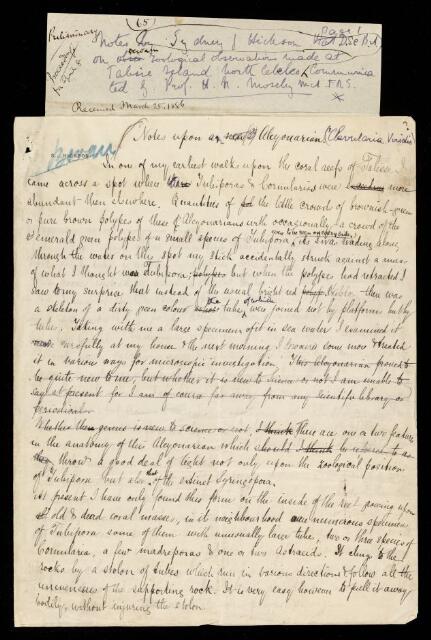 Preliminary
(65)
Notes by Sydney J Hickson
BA DSc
on zoological observations made at
Talisse Island North Celebes Communica
ted by Prof. H. N. Moseley M.A F.R.S.
Proceedings
Received March 25. 1886
Notes upon Alcyonarian Clavularia Viridis
In one of my earliest walks upon the coral reefs of Talisse I
came across a spot where Tubipora & Cornularias were more
abundant than elsewhere. Quantities of the little crowd of brownish-green
or pure brown polypes of these Alcyonarians with occasionally a crowd of the
emerald green polypes of a small species of Tubipora
through the water on this spot my stick accidentally struck against a mass
of what I thought was Tubipora; but when the polypes had retracted I
saw to my surprise that instead of the usual bright red there was
a skeleton of a dirty green colour the tubes of which were joined not by platforms but by
tubes. Taking with me a large specimen of it in sea water I examined it
carefully at my house & the next morning I & treated
it in various ways for microscopic investigation. This Alcyonarian proved to
be quite new to me, but whether it is new to science or not I am unable to
say at present for I am of course far away from any scientific library or
periodical
Whether the genus is new to science or not I think There are one or two features
in the anatomy of this Alcyonarian which should I think be
throw a good deal of light not only upon the zoological position
of Tubipora but also that of the extinct Syringopora.
At present I have only found this form on the inside of the reef growing upon
old & dead coral masses, in its neighbourhood are numerous specimens
of Tubipora some of them with unusually large tubes, two or three species of
Cornularia, a few madrepores & one or two Astraeids. It clings to the
rocks by a stolon of tubes which run in various directions & follow all the
unevenesses of the supporting rock. It is very easy however to pull it away
bodily, without injuring the stolon.